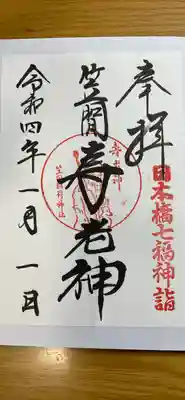 奉拝
日本橋七福神詣
笠間寿老神
寿老神
笠間稲荷神社
令和四年一月一日